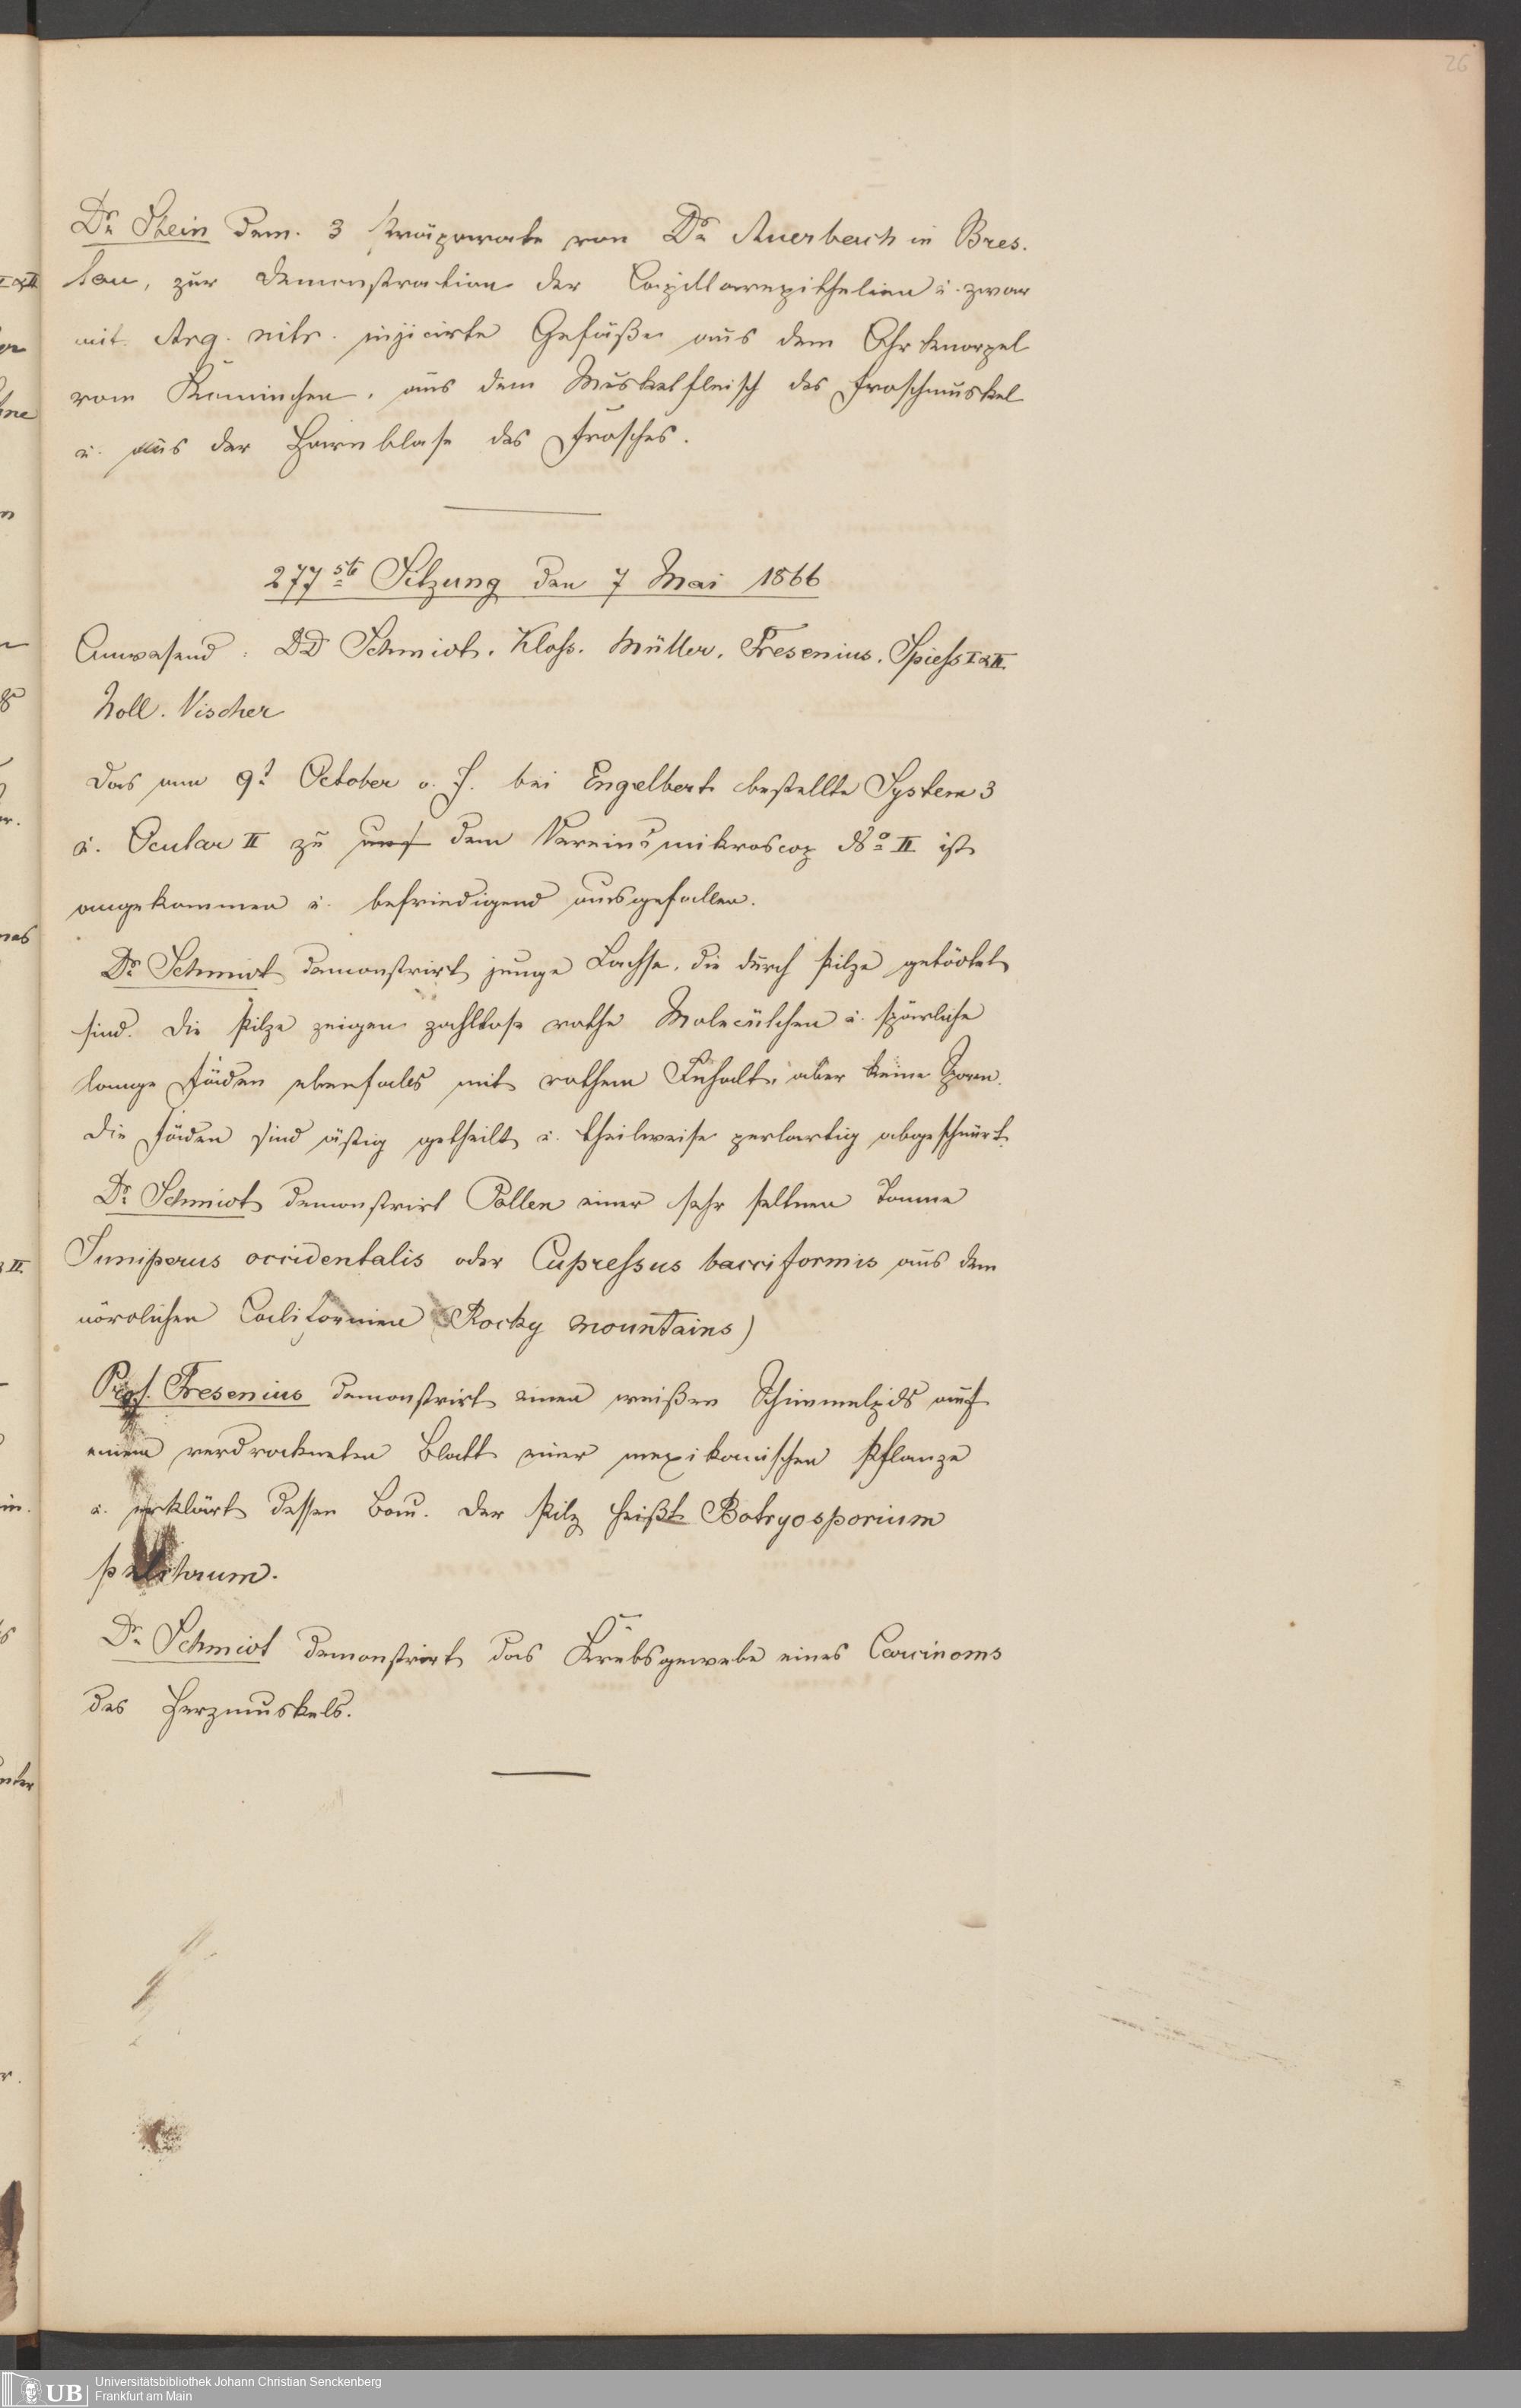 26
Dr Stein dem. 3 Präparate von Dr Auerbach in Bres-
lau, zur Demonstration der Capillarepithelien u. zwar
mit Arg. nitr. injicirte Gefäße aus dem Ohrknorpel
vom Kaninchen, aus dem Muskelfleisch des Froschmuskel
u. aus der Harnblase des Frosches.
277ste Sitzung den 7 Mai 1866
Anwesend: DD Schmidt. Kloß. Müller. Fresenius. Spieß I & II.
Noll. Vischer
Das am 9t October v. J. bei Engelbert bestellte System 3
u. Ocular II zu dem Vereinsmikroscop No II ist
angekommen u. befriedigend ausgefallen.
Dr Schmidt demonstrirt junge Lachse, die durch Pilze getödtet
sind. Die Pilze zeigen zahllose rothe Molecülchen u. spärliche
lange Fäden ebenfalls mit rothem Inhalt, aber keine Sporen.
Die Fäden sind ästig getheilt u. theilweise perlartig abgeschnürt.
Dr Schmidt demonstrirt Pollen einer sehr seltnen Tanne
Juniperus occidentalis oder Cupressus bacciformis aus dem
nördlichen Californien (Rocky mountains)
Prof. Fresenius demonstrirt einen weißen Schimmelpilz auf
einem verdrockneten Blatt einer mexikanischen Pflanze
u. erklärt dessen Bau. Der Pilz heißt Botryosporium
pulchrum.
Dr Schmidt demonstrirt das Krebsgewebe eines Carcinoms
des Herzmuskels.
UB
Universitätsbibliothek Johann Christian Senckenberg
Frankfurt am Main